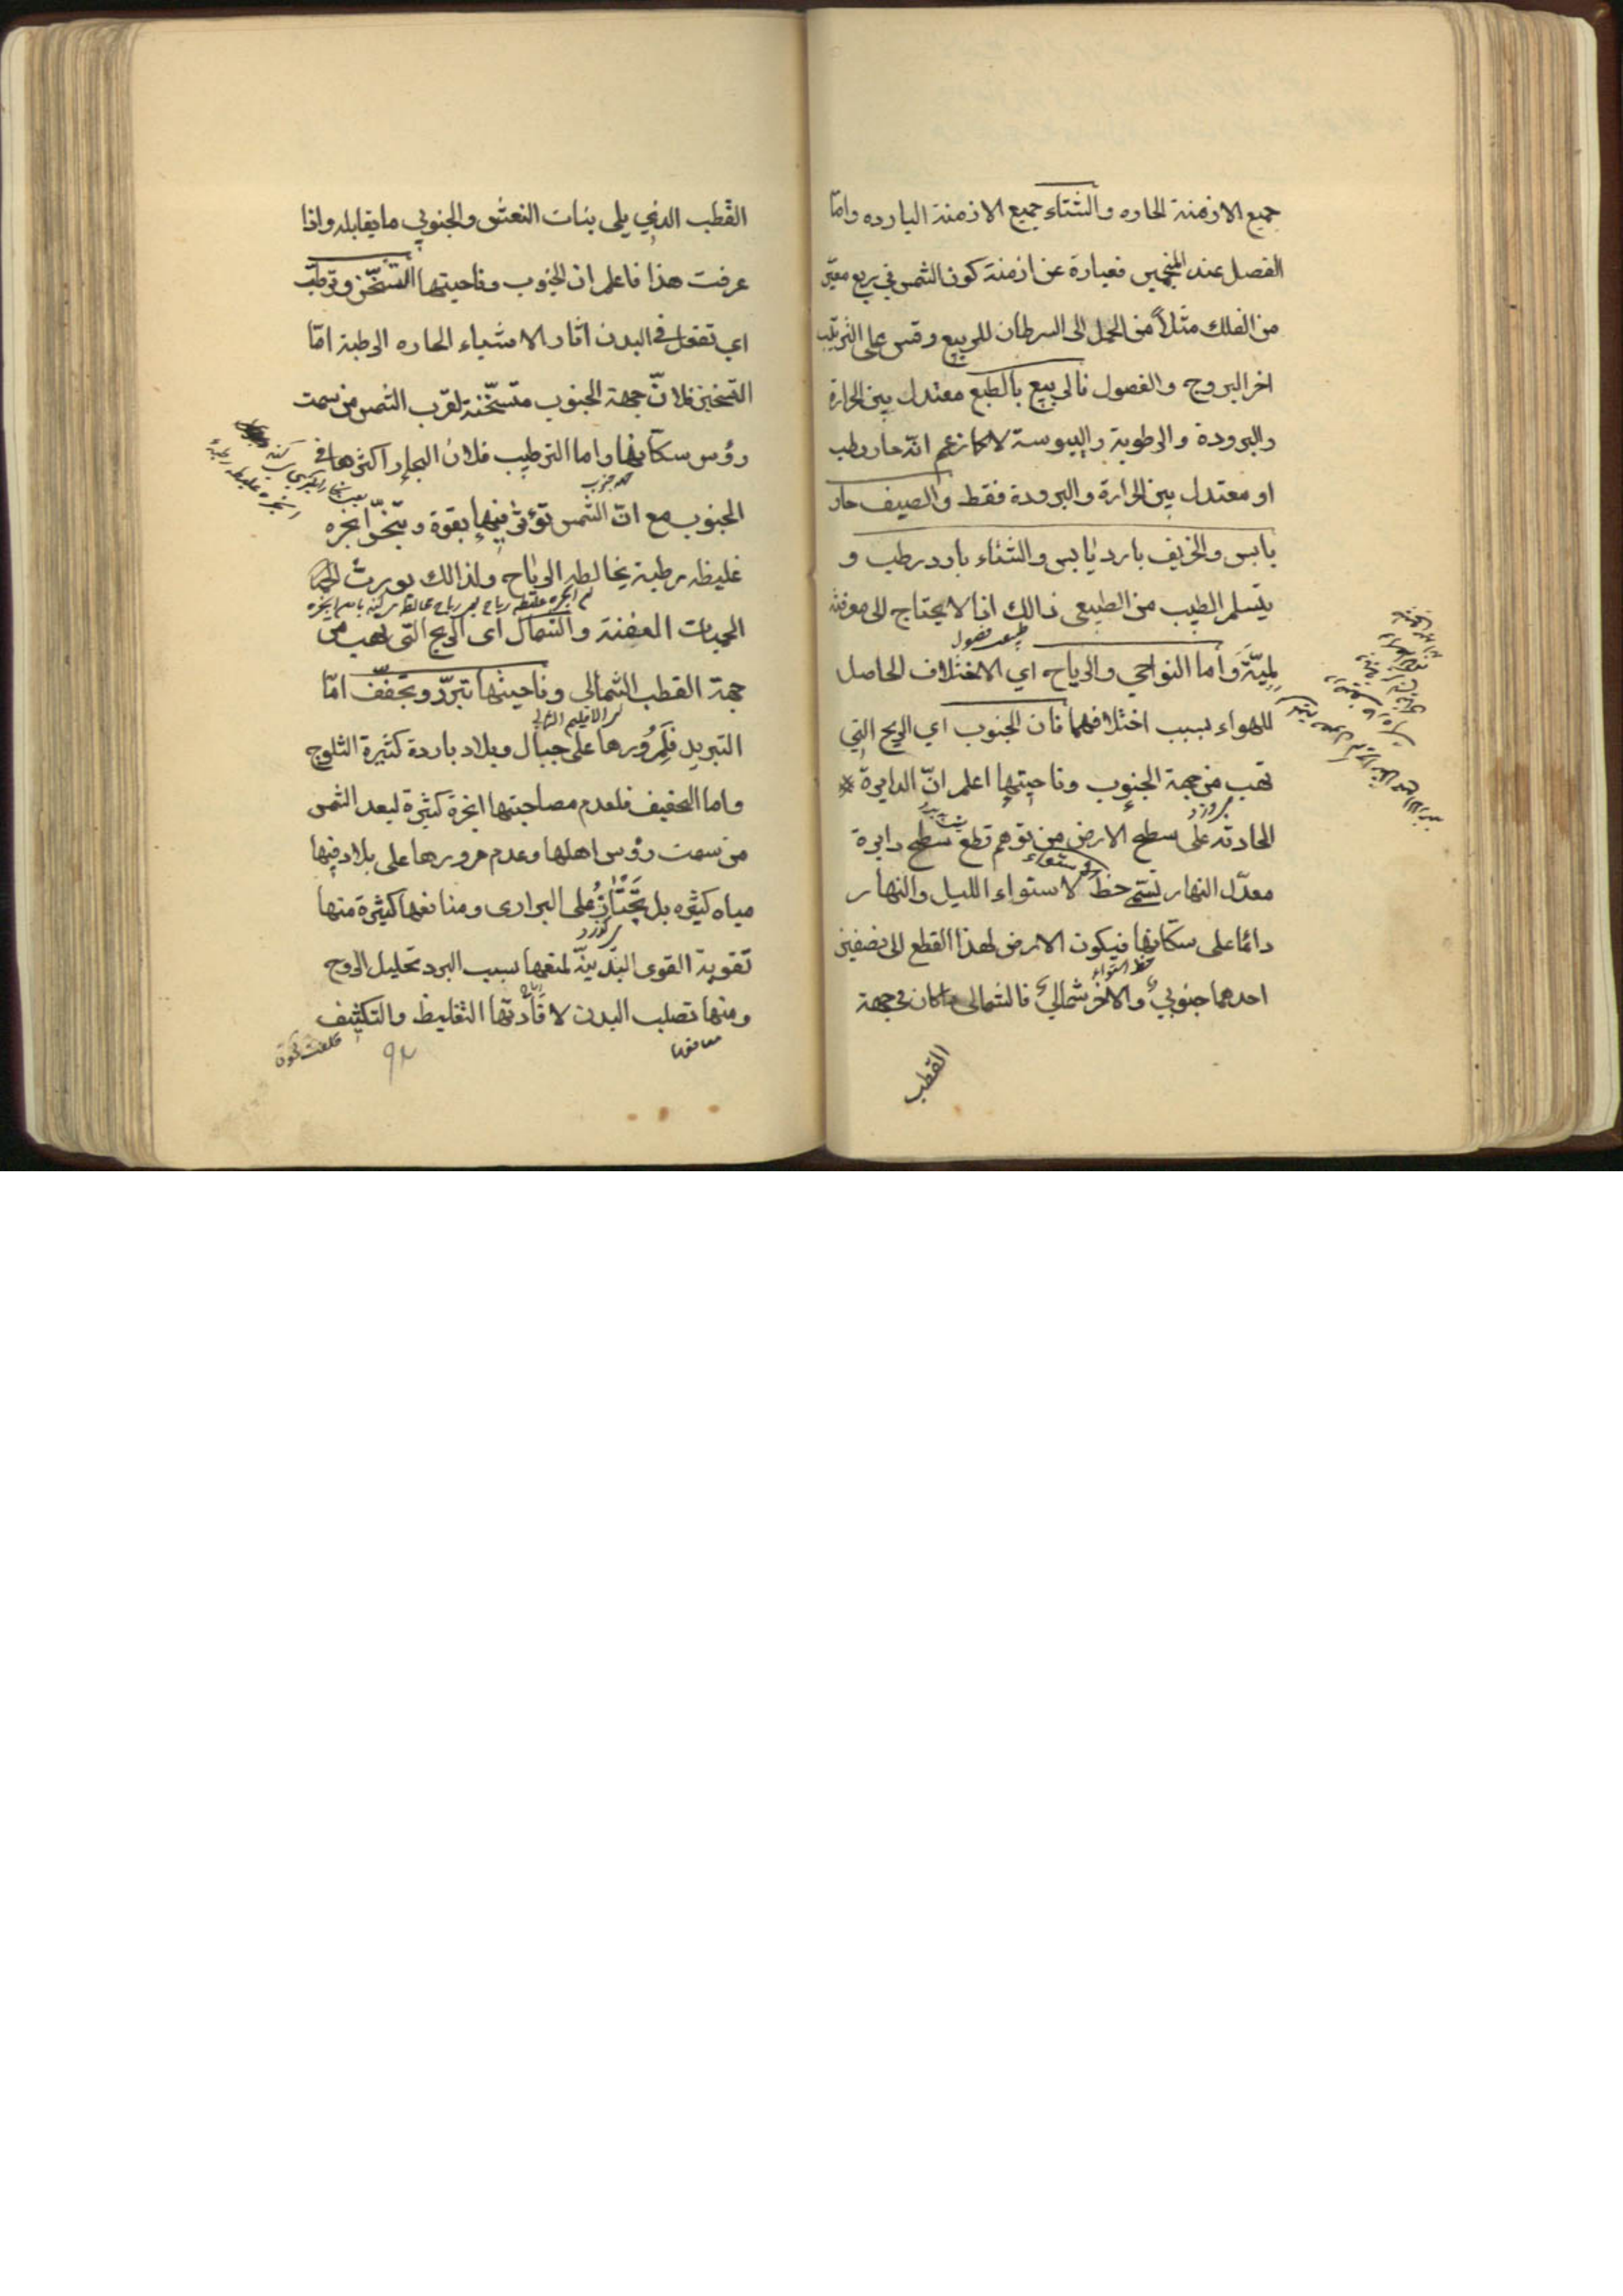 جميع الازمنة الحاره والشتاء جميع الازمنة البارده واما
الفصل عند المنجمين فعبارة عن ازمنة كون الشمس في ربع معين
من الفلك مثلاً من الحمل الى السرطان للربيع وقس على الترتيب
اخر البروج والفصول فالربيع بالطبع معتدل بين الحرارة
والبرودة والرطوبة واليبوسة لا كما زعم انّه حار رطب
او معتدل بين الحرارة والبرودة فقط والصيف حار
يابس والخريف بارد يابس والشتاء بارد رطب و
يتسلم الطبيب من الطبيعي ذالك اذا لا يحتاج الى معرفته
لميّة واما النواحي والرياح اي الاختلاف الحاصل
للهواء بسبب اختلافهما فان الجنوب اي الريح التي
تهب من جهة الجنوب وناحيتها اعلم انّ الدايرة
الحادثه على سطح الارض من توهم قطع سطح دايرة
معدّل النهار تسمى خط الاستواء لاستواء الليل والنهار
دائما على سكانها فيكون الارض لهذا القطع الى نصفين
خط استواء
احدهما جنوبي والاخر شمالي فالشمالي ما كان في جهة
القطب
القطب الذي يلى بنات النعش والجنوبي ما يقابله واذا
عرفت هذا فاعلم ان الجنوب وناحيتها التسخّن وترطب
اي تفعل في البدن اثار الاشياء الحاره الرطبة امّا
التسخين فلانّ جهة الجنوب متسخّنة لقرب الشمس من سمت
رؤس سكانها واما الترطيب فلان البحار اكثرها في
الجنوب مع ان الشمس تؤثر فيها بقوة وتبخّر ابخره
غليظه رطبة يخالطه الرياح ولذالك يورث
الحميات العفنة والشمال اى الريح التى تهب من
جهة القطب الشمالي وناحيتها تبرّد وتجفّف امّا
التبريد فلمرورها على جبال وبلاد باردة كثيرة الثلوج
واما التجفيف فلعدم مصاحبتها ابخرة كثيرة لبعد الشمس
من سمت رؤس اهلها وعدم مرورها على بلاد فيها
مياه كثيره بل تجتاز على البرارى ومنافعها كثيرة منها
تقوية القوى البدنيّة لمنعها بسبب البرد تحليل الروح
ومنها تصلب البدن لافادتها التغليظ والتكثيف